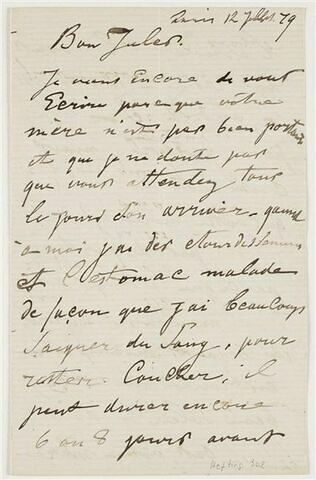 Paris 12 Juillet 79
Bon Jules.
Je viens Encore de vous
Ecrire parceque votre
mère n'est pas bien portante
et que je ne doute pas
que vous attendez tous
le jours son arriver. quand
à moi j'ai des etourdissements
et l'estomac malade
de facon que j'ai beaucoup
Saigner du Sang, pour
rester Coucher, il
peut durer encore
6 ou 8 jours avant